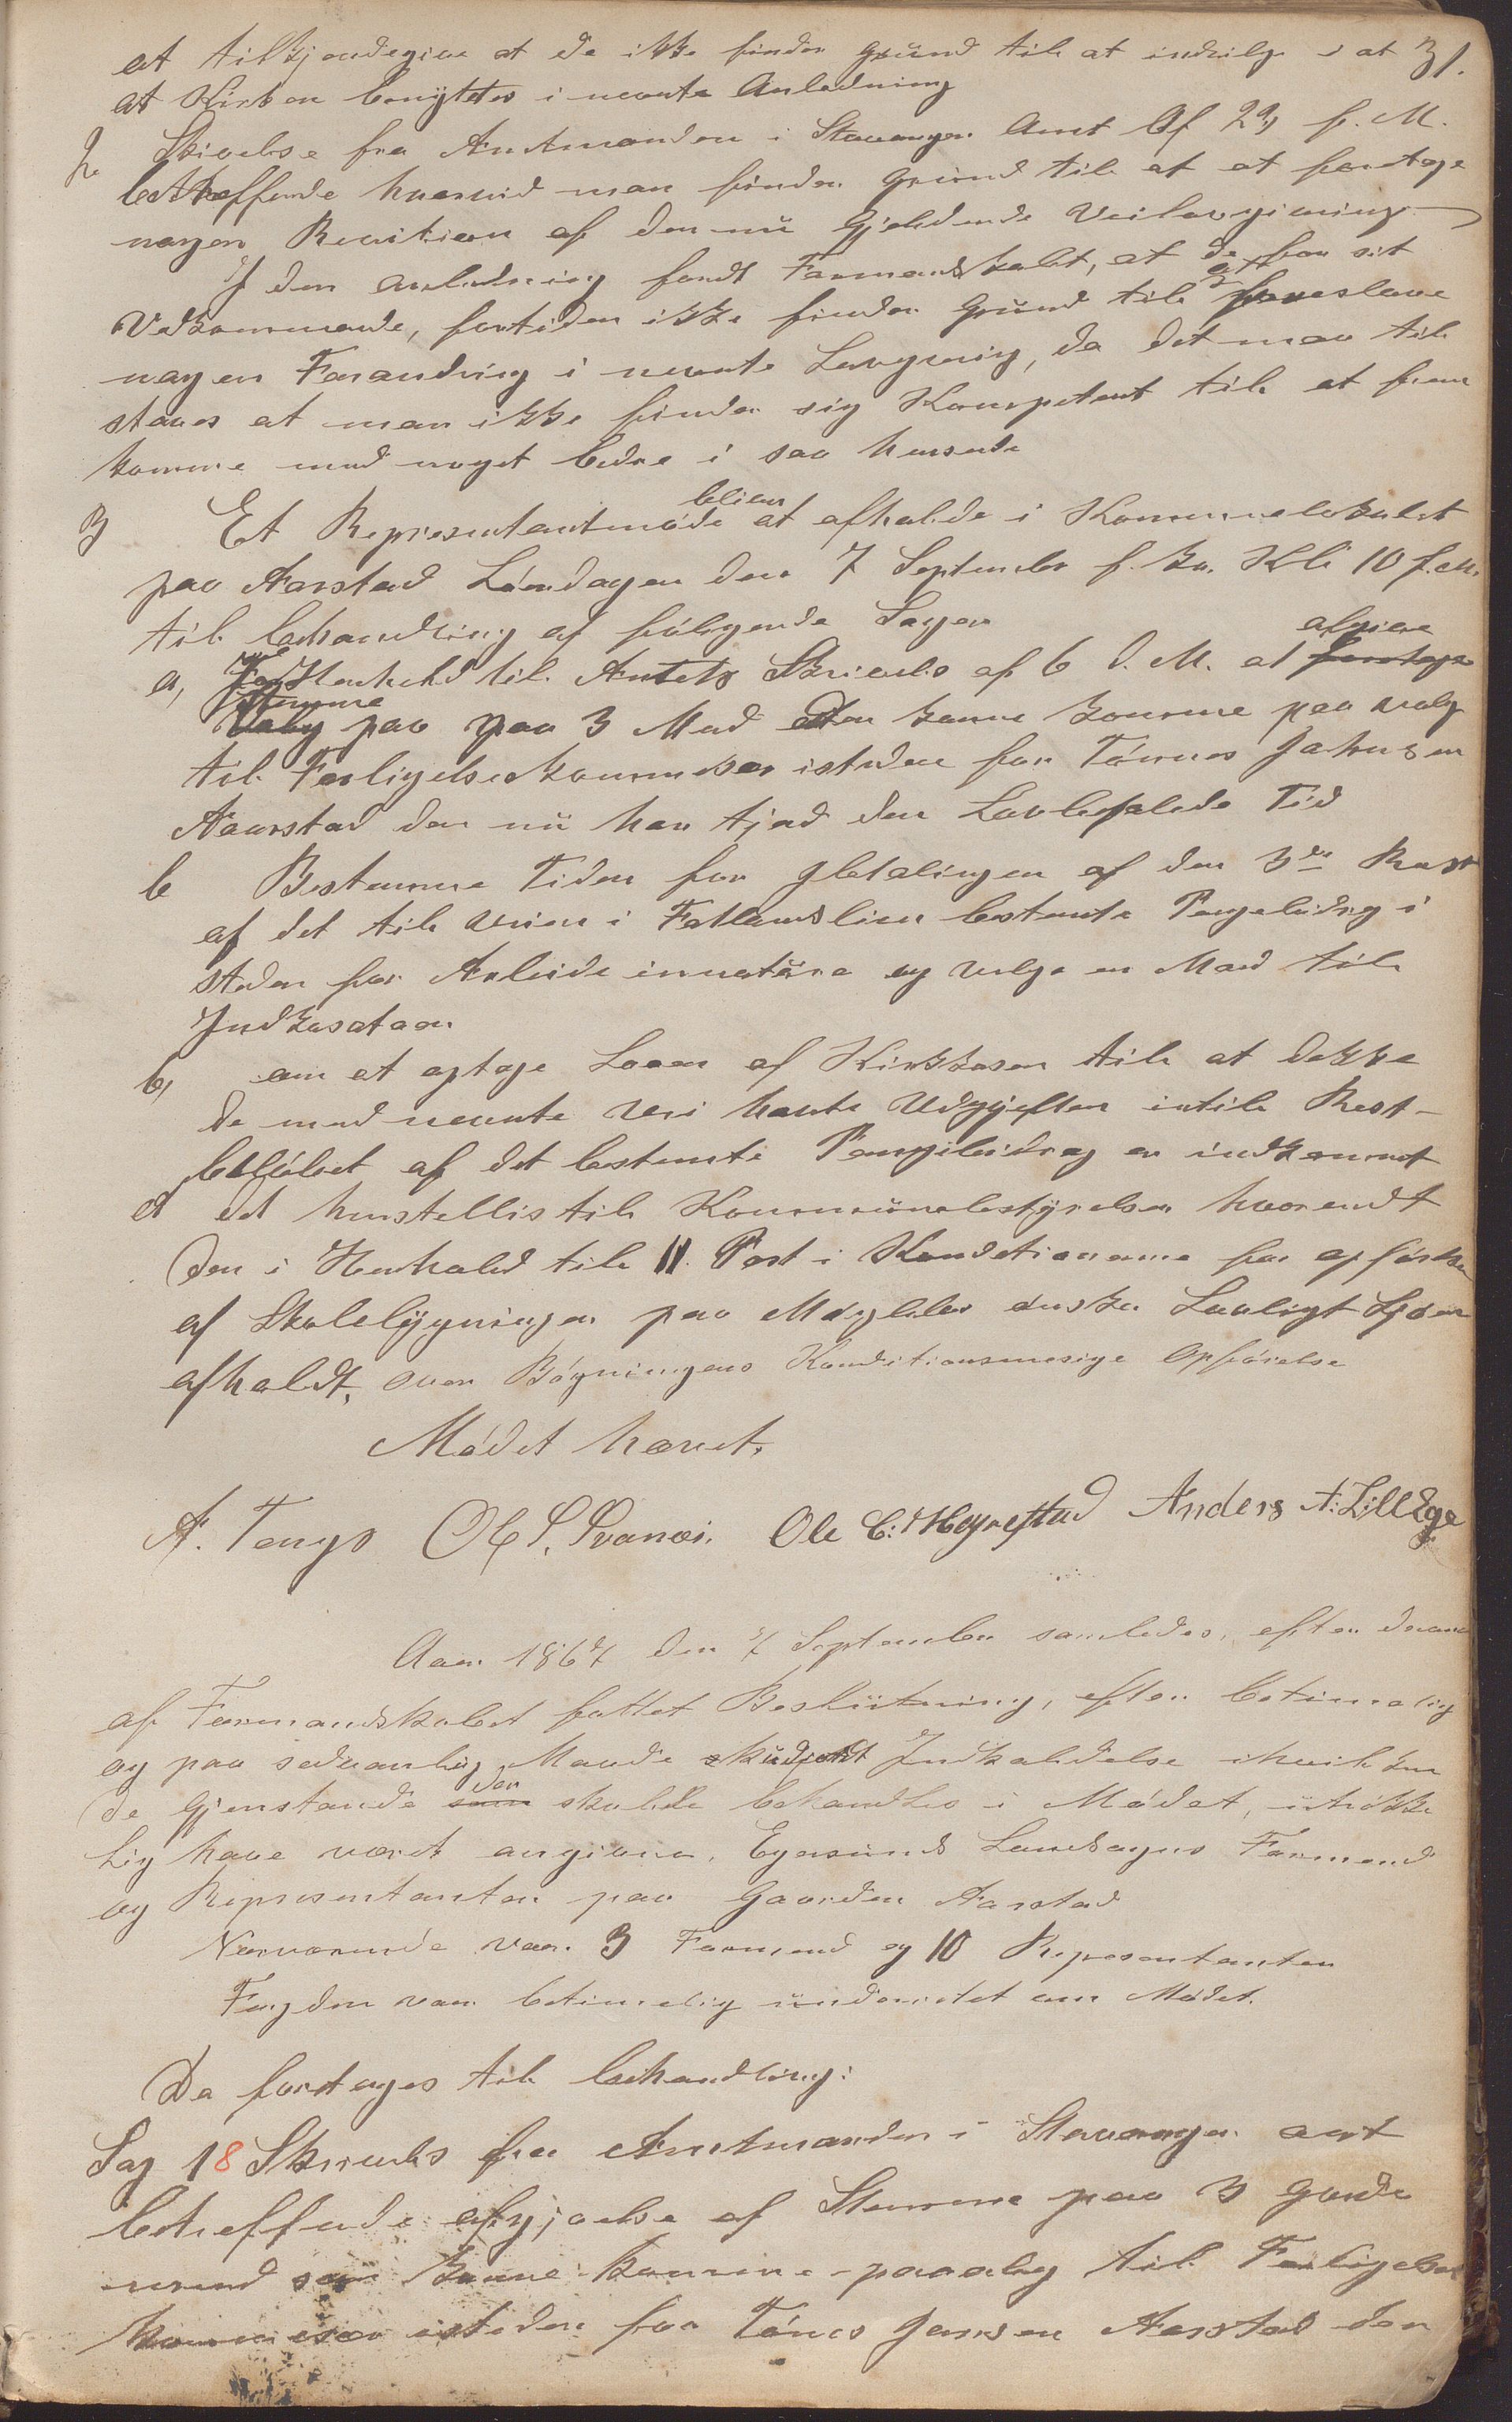 at tilkjendegive at de ikke finder Grund til at indvilge i at 31.
at Kirken benyttes i nevnte Anledning
2 Skivelse fra Amtmanden i Stavanger Amt af 29 f. M.
betreffende hvorvid man finder Grund til at at foretage
nogen Revition af den nu Gjeldende Veilovgivning
I den anledning fandt Formandskabet, at de for sit
Vedkommende, fortiden ikke finder Grund til at foreslaae
nogen Forandring i nevnte Lovgivnig, da det maa til
staaes at man ikke finder sig Kompetent til at frem
komme med noget bedre i saa henseende
3 Et Representantmøde bliver at afholde i Kommunelokalet
paa Aarstad Lørdagen den 7 September f. k. Kl 10 f.m.
til behandling af følgende Sager
a, Henhold til Amtets Skrivelse af 6 d. M. at foretage afgive
Valg Stemme paa paa 3 Mænd der kunne komme paa valg
til Forligelseskommiser istedene for Tønnes Jakobsen
Aarstad der nu har tjent den Lovbefalede Tid
b Bestemme Tiden for Ibetalingen af den 3die Rest
af det til Veien i Fotlandslien bestemte Pengebidrag i
steden for Arbeide innatura og velge en Mand til
Indkasator
b, om at optage Laan af Kirkkasen til at dekke
de med nevnte Vei havte Udgifter intil Rest-
beløbet af det bestemte Pengebidrag er indkommet
d et henstillis til Kommunebestyrelsen hvorvidt
den i Henhold til 11. Post i Kondetionerne for opførsen
af Skolebygningen paa Møgleby ønsker Lovligt Skjøn
afholdt, over Bygningens Konditionsmesige Opførelse
Mødet hævet.
A. Tengs Ol S. Svanæs. Ole C. Hegrestad Anders A: Lille Ege
Aar 1867 den 7 September samledes, efter derom
af Formandskabet fattet Beslutning, efter betimelig
og paa sedvanlig Maade skudsendt Indkaldelse ihvilken
de Gjenstande som der skulde behandles i Mødet, utrøkke
lig have været angivne, Egersunds Landsogns Formend
og Representanter paa Gaarden Aarstad
Nærværende var 3 Formend og 10 Representanter
Fogden var betimelig underrettet om Mødet.
Da foretoges til behandling:
Sag 18 Skrivels fra Amtmanden i Stavanger amt
betreffende afgivelse af Stemme paa 3 Gode
mænd som kunne komme paavalg til Forligelses
kommisær isteden for Tønes Jansen Aarstad der